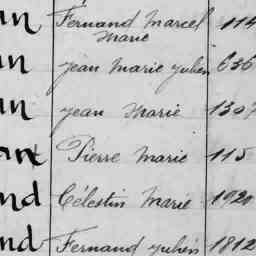 an Fernand Marcel 114
Marie
an Jean Marie Julien 636
an Jean Marie 1307
ant Pierre Marie 115
nd Célestin Marie 1920
nd Fernand Julien 1812